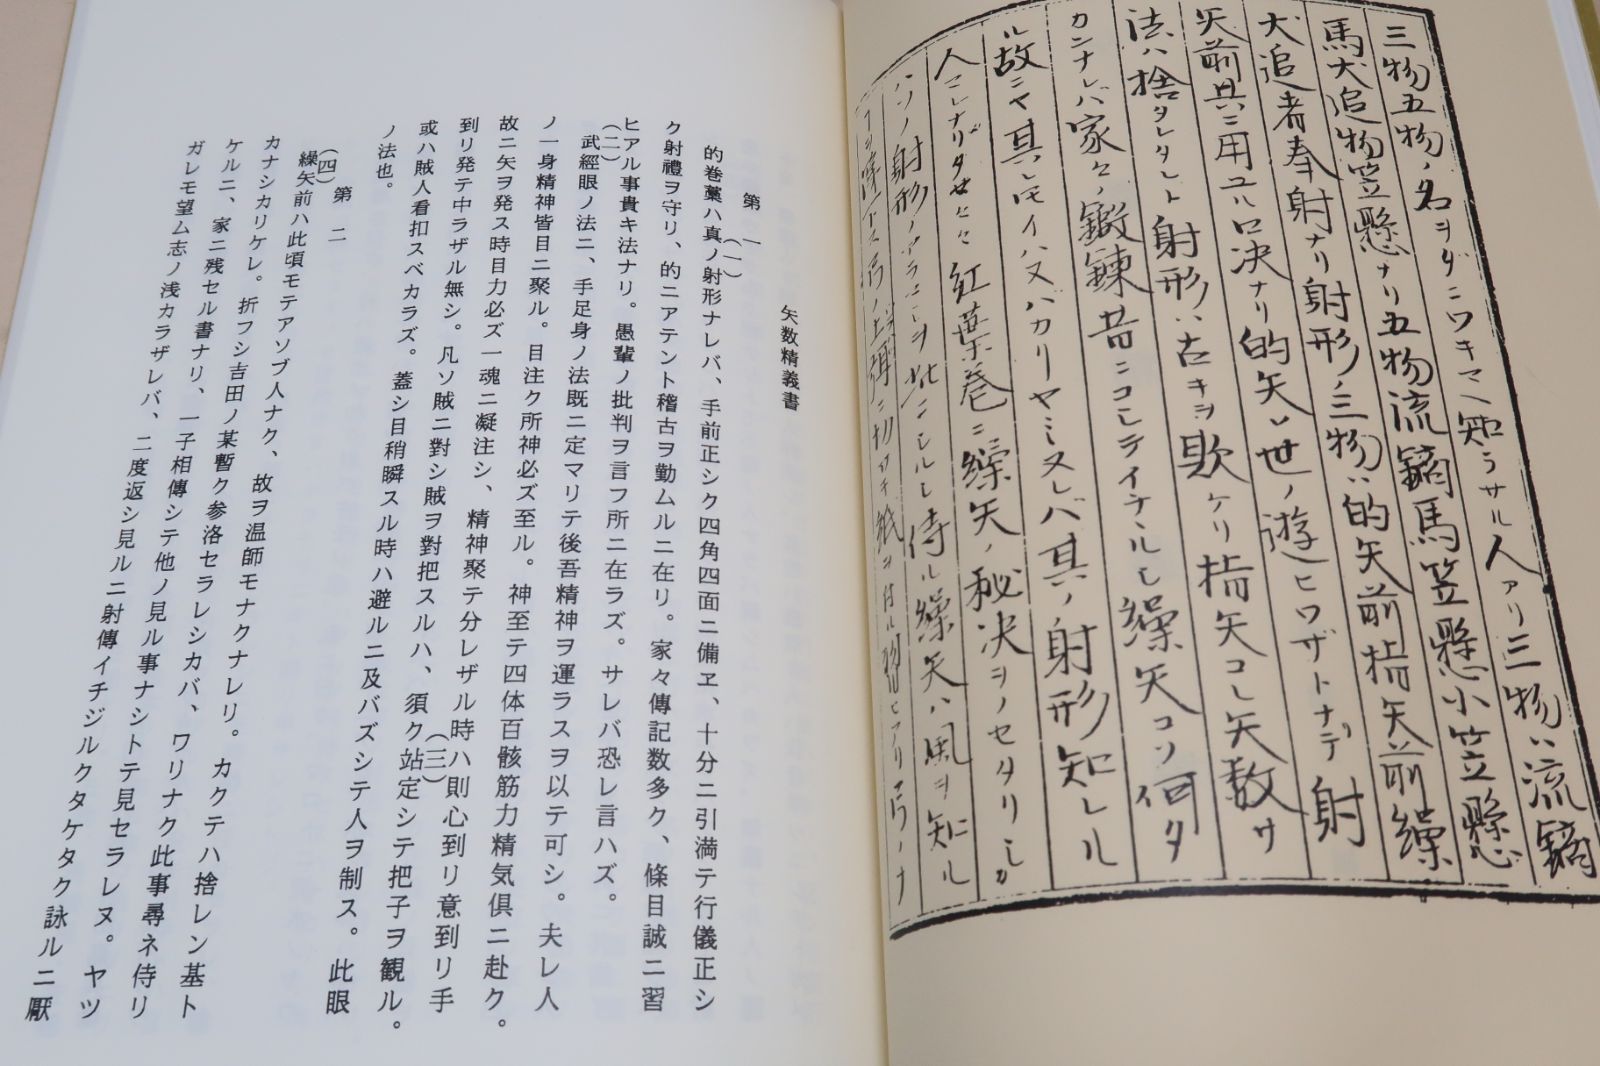 三物五物ノ名ヲダニワキマヘ知ラサル人アリ三物ハ流鏑
馬犬追物笠懸ナリ五物流鏑馬笠懸小笠懸
犬追者奉射ナリ射形ノ三物ハ的矢前指矢前繰
矢前具ニ用ユル口決ナリ的矢ハ世ノ遊ヒワザトナテ射
法ハ捨タレタレト射形ハ古キヲ欺ケリ指矢コレ矢数サ
カンナレバ家々ノ鍛錬昔ニコレテイチルシ繰矢コソ何タ
ル故ニヤ其シモイハ又バカリヤミヌレバ其ノ射形知レル
人マレナリダセヒ紅葉巻ニ繰矢ノ秘决ヲノセタリシカ
侍ル繰矢ハ風ヲ知ル
矢数精義書
第一
(一)
的巻藁ハ真ノ射形ナレバ、手前正シク四角四面ニ備ヱ、十分ニ引満テ行儀正シ
ク射禮ヲ守リ、的ニアテント稽古ヲ勤ムルニ在リ。家々傳記数多ク、條目誠ニ習
ヒアル事貴キ法ナリ。愚輩ノ批判ヲ言フ所ニ在ラズ。サレバ恐レ言ハズ。
(二)
武經眼ノ法ニ、手足身ノ法既ニ定マリテ後吾精神ヲ運ラスヲ以テ可シ。夫レ人
ノ一身精神皆目ニ聚ル。目注ク所神必ズ至ル。神至テ四体百骸筋力精気倶ニ赴ク。
故ニ矢ヲ発ス時目力必ズ一魂ニ凝注シ、精神聚テ分レザル時ハ則心到リ意到リ手
到リ発テ中ラザル無シ。凡ソ賊ニ對シ賊ヲ對把スルハ、須ク站定シテ把子ヲ観ル。
(三)
或ハ賊人看扣スベカラズ。蓋シ目稍瞬スル時ハ避ルニ及バズシテ人ヲ制ス。此眼
ノ法也。
第二
(四)
繰矢前ハ此頃モテアソブ人ナク、故ヲ温師モナクナレリ。カクテハ捨レン基ト
カナシカリケレ。折フシ吉田ノ某暫ク参洛セラレシカバ、ワリナク此事尋ネ侍リ
ケルニ、家ニ残セル書ナリ、一子相傳シテ他ノ見ル事ナシトテ見セラレヌ。ヤツ
ガレモ望ム志ノ浅カラザレバ、二度返シ見ルニ射傳イチジルクタケタク詠ルニ厭